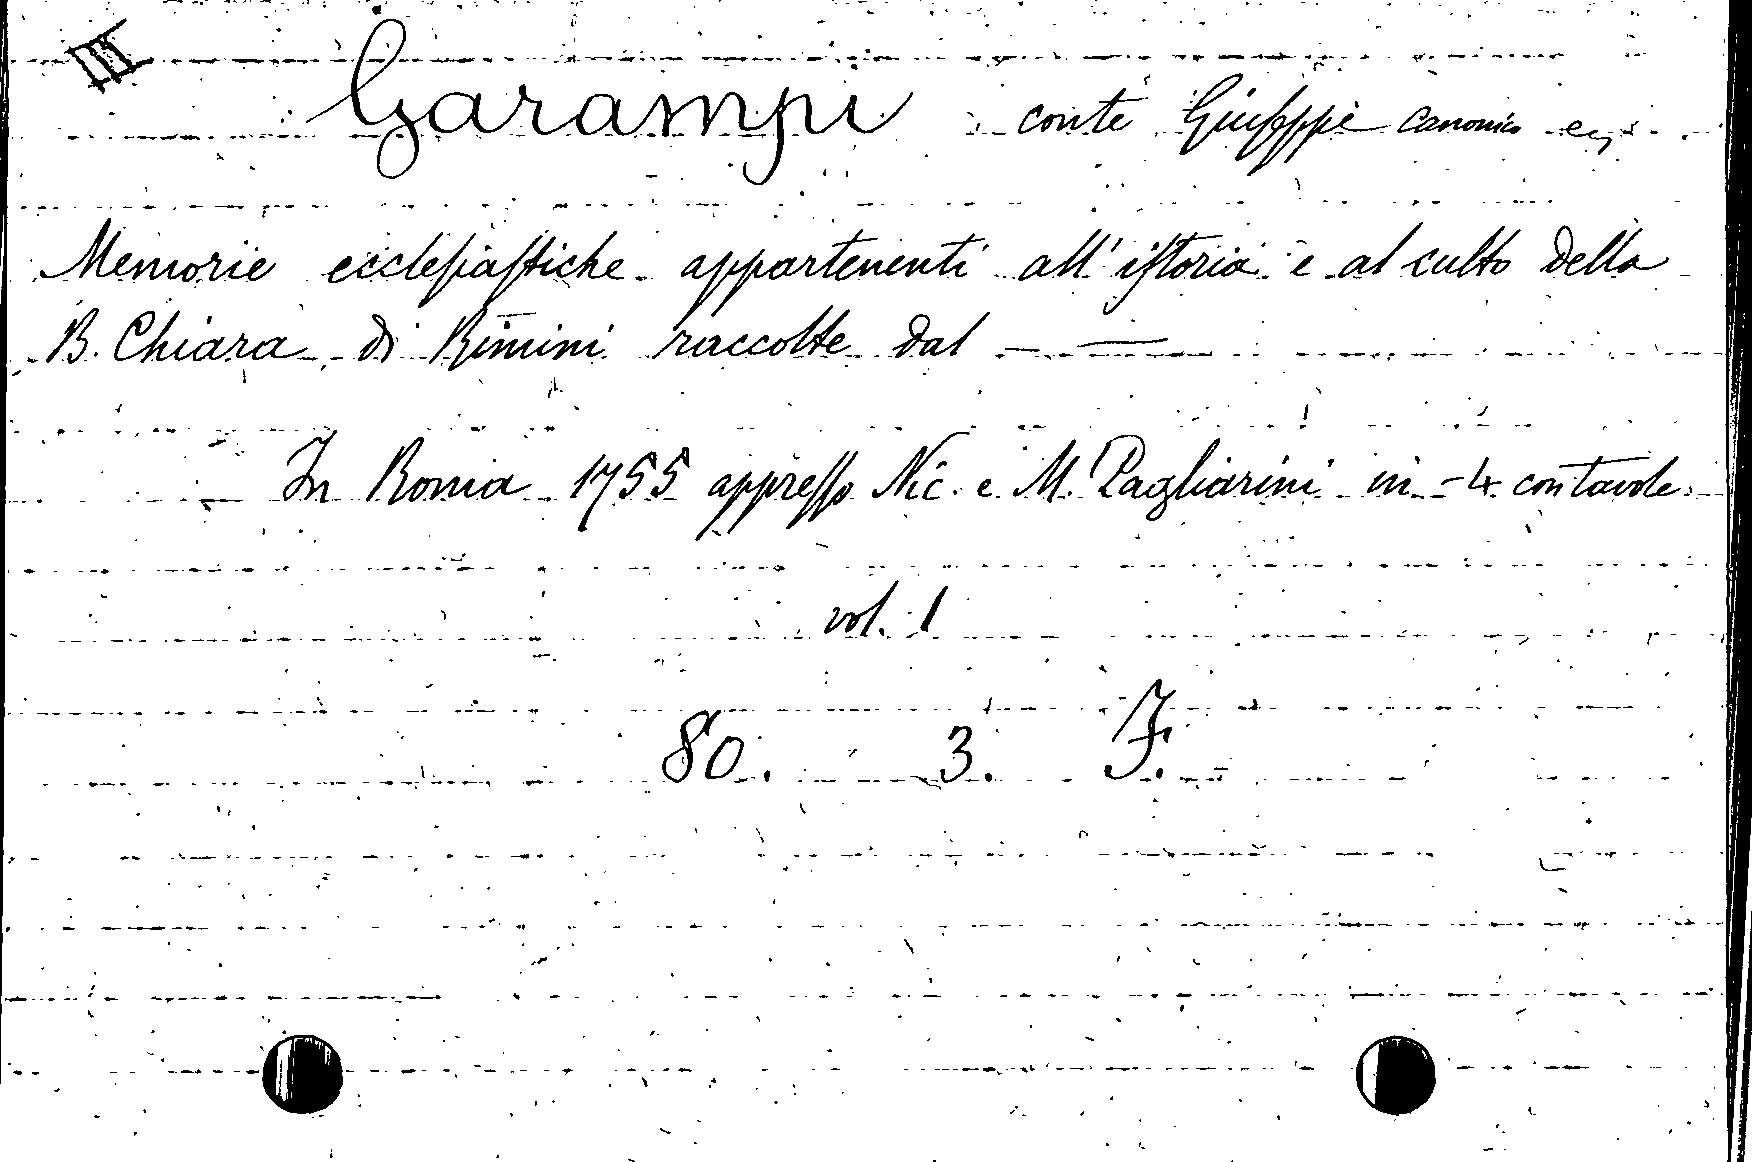 III
Garampi conte Giuseppe canonico
Memorie ecclesiastiche appartenenti all'istoria e al culto della
B. Chiara di Rimini raccolte dal —
In Roma 1755 appresso Nic. e M. Pagliarini in-4 con tavole
vol. 1
80. 3. F.